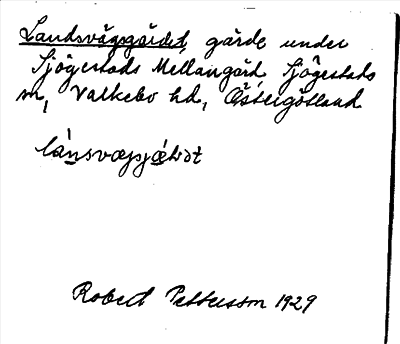 Landsvägsgärdet, gärde under
Sjögestads Mellangård, Sjögestads
sn, Valkebo hd, Östergötland
Robert Pettersson 1929